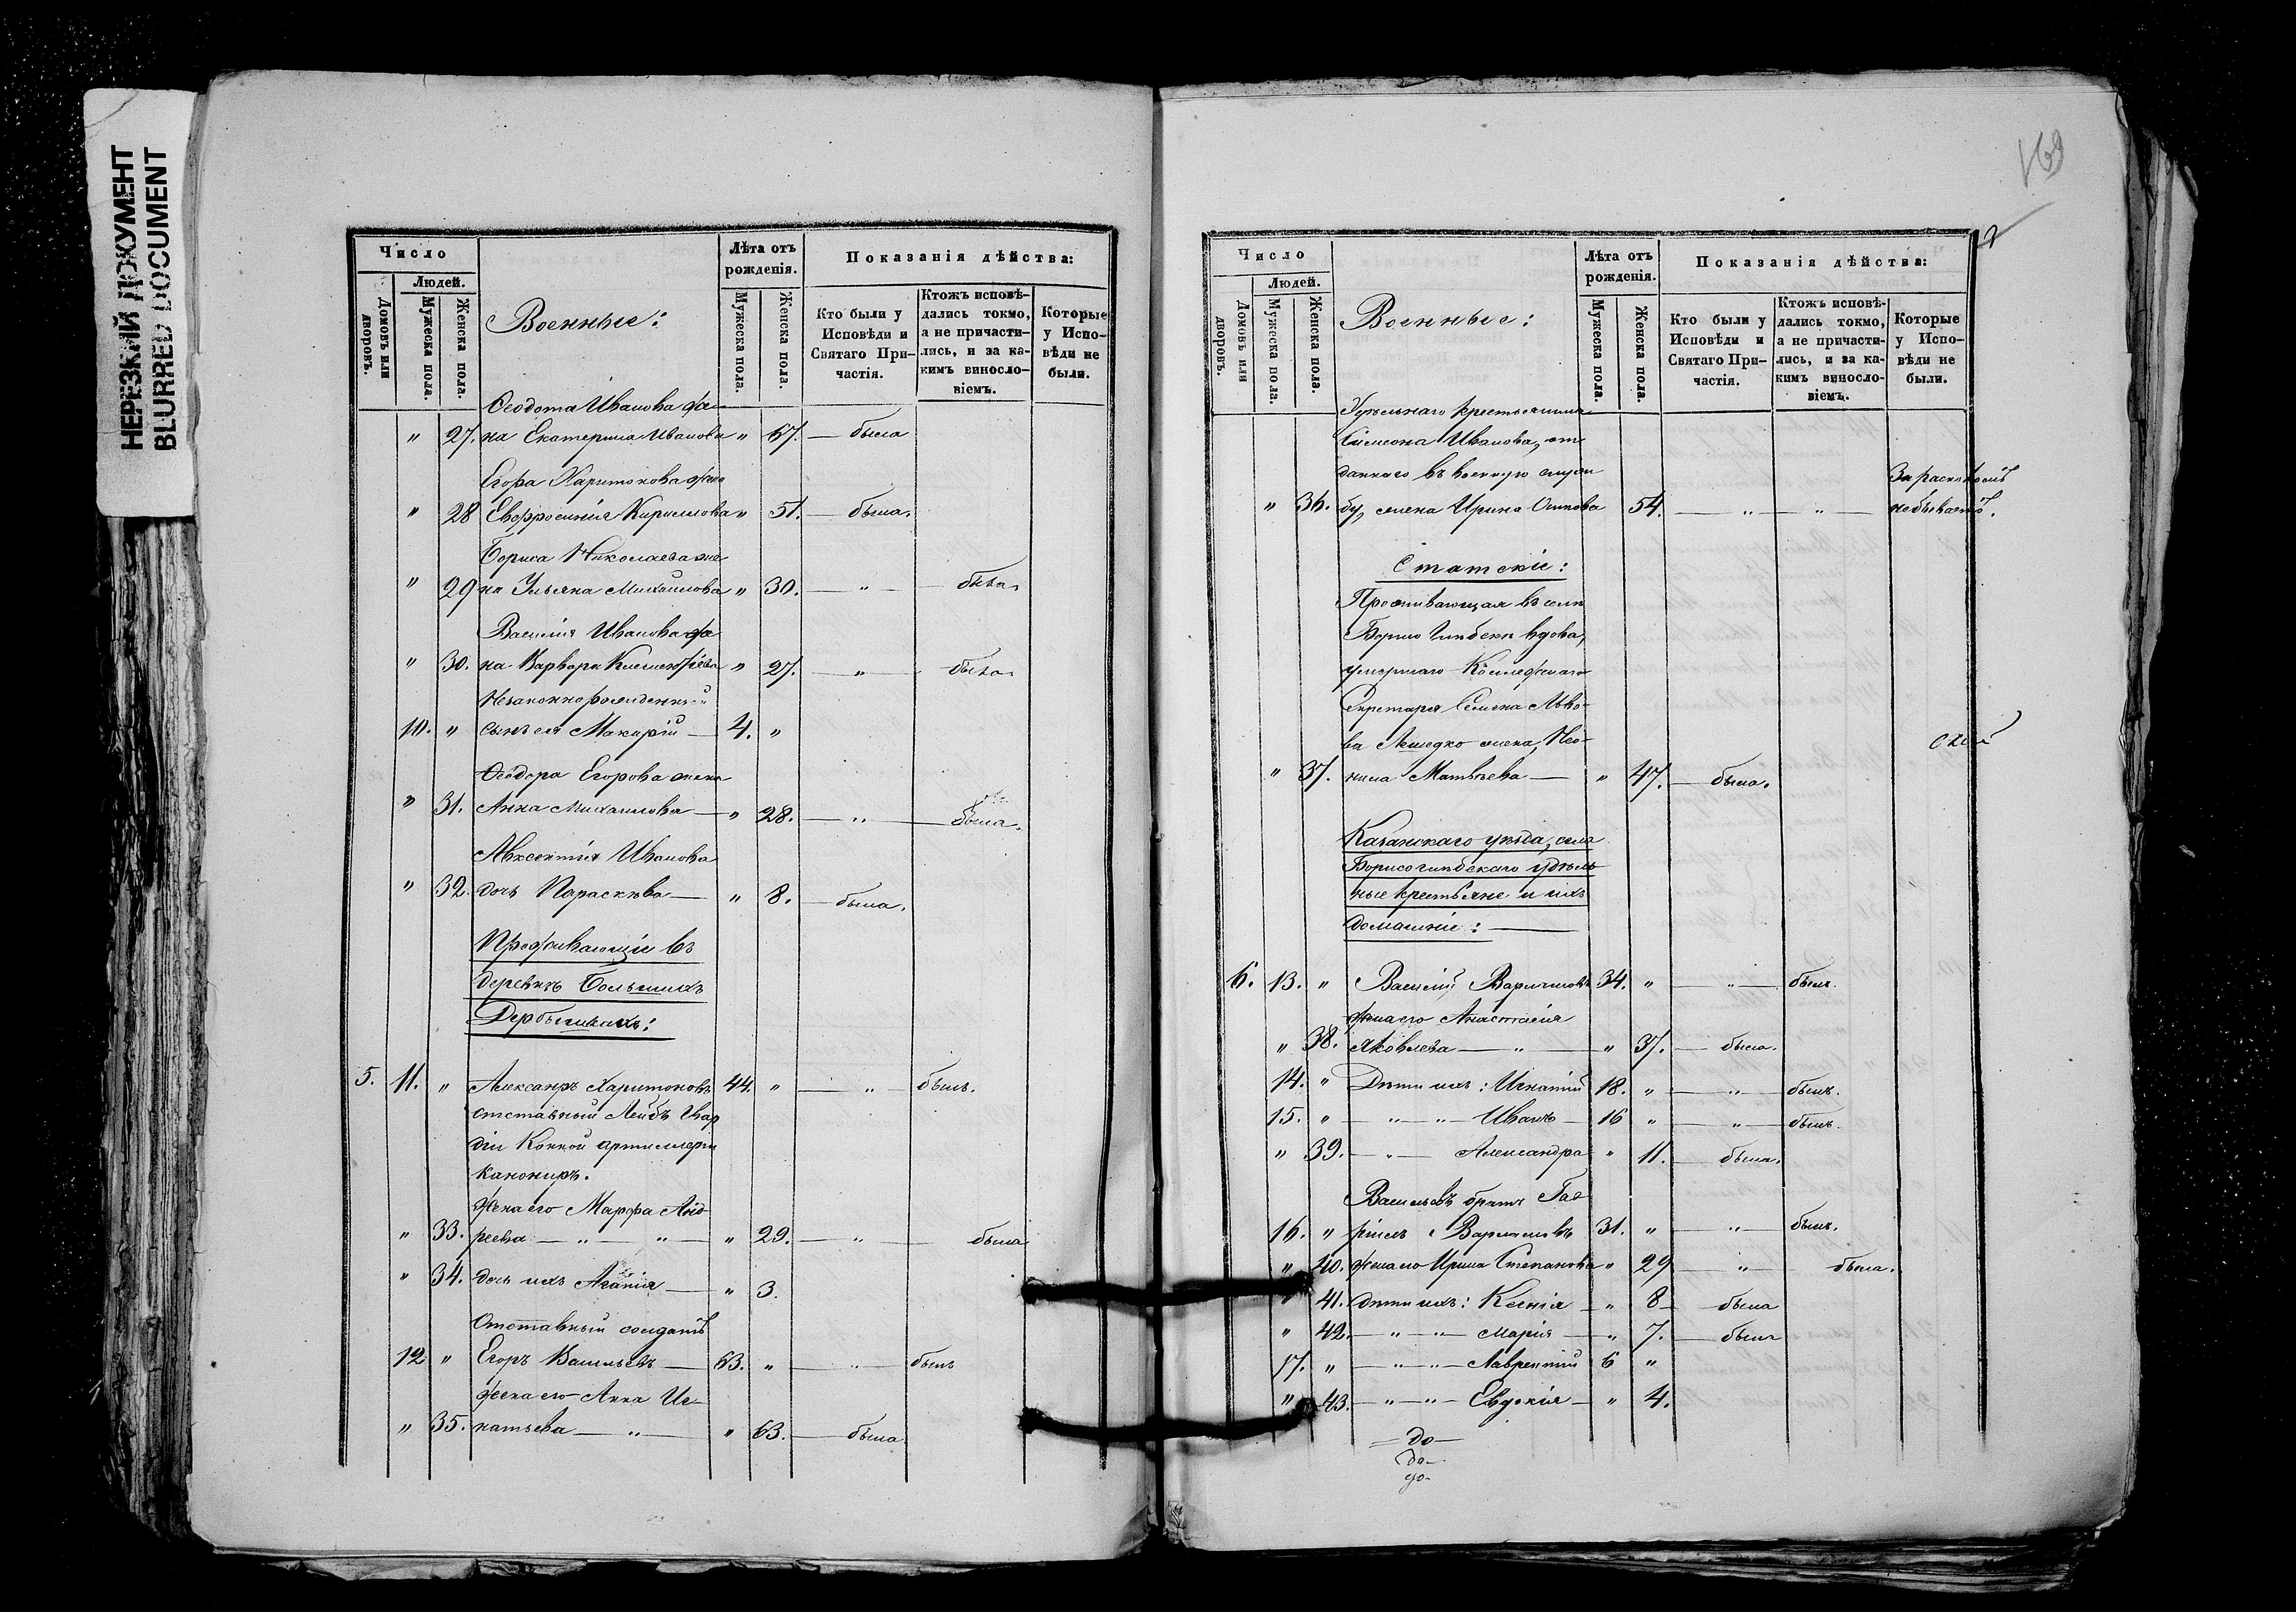 НЕРЕЗКИЙ ДОКУМЕНТ
BLURRED DOCUMENT
Число
Людей.
Домовъ или дворовъ.
Мужеска пола.
Женска пола.
Военные:
Лѣта отъ рожденія.
Мужеска пола.
Женска пола.
Показанія дѣйства:
Кто были у Исповѣди и Святаго Причастія.
Ктожъ исповѣдались токмо, а не причастились, и за какимъ винословіемъ.
Которые у Исповѣди не были.
Ѳеодота Иванова же-
" 27. на Екатерина Иванова " 67. — была
Егора Харитонова жена
" 28 Евфросинія Кириллова " 51. — была.
Бориса Николаева же-
" 29 на Ульяна Михайлова " 30. — " — была.
Василія Иванова же
" 30. на Варвара " 27. — " — была.
Незаконнорожденный
10. " сынъ ея Макарій — 4. "
Ѳеодора Егорова жена
" 31. Анна Михаилова — " 28. — " — была.
Авксентія Иванова
" 32. дочь Параскева — " 8. — была.
Проживающіе въ
деревнѣ Большихъ
Дербышкахъ:
5. 11. " Александръ Харитоновъ 44. " — " — былъ.
отставный Лейбъ Гвар
діи Конной артиллеріи
канониръ.
Жена его Марфа Анд-
" 33. реева — " — " — " 29. — " — была
" 34. дочь ихъ Агапія — " 3.
Отставный солдатъ
12 " Егоръ Васильевъ — 63. " — " — былъ
Жена его Анна Иг-
" 35. натьева — " — " 63. — была
169
Число
Людей.
Домовъ или дворовъ.
Мужеска пола.
Женска пола.
Военные:
Лѣта отъ рожденія.
Мужеска пола.
Женска пола.
Показанія дѣйства:
Кто были у Исповѣди и Святаго Причастія.
Ктожъ исповѣдались токмо, а не причастились, и за какимъ винословіемъ.
Которые у Исповѣди не были.
Удѣльнаго крестьянина
Симеона Иванова, от
даннаго въ военную служ
" 36. бу, жена Ирина Осипова 54. — " — " — За расколомъ небываетъ.
Статскіе:
Проживающая въ селѣ
Борисо Глѣбскѣ вдова,
умершаго Коллежскаго
Секретаря Семена Льво-
ва жена, Нео-
" 37. нила Матвѣева — " 47. — была.
Казанскаго уѣзда, села
Борисоглѣбскаго удѣль
ные крестьяне и ихъ
домашніе: —
6. 13. " Василій Варламовъ 34. " — " — былъ.
Жена его Анастасія
" 38. Яковлева — " — " 37. — была.
14. " Дѣти ихъ: Игнатій 18. " — " — былъ.
15. " — " — " — Иванъ — 16 " — " — былъ.
" 39. — " — Александра " 11. — была.
Васильевъ братъ Гав
16. " ріилъ Варламовъ 31. " — " — былъ.
" 40. Жена его Ирина Степанова " 29 — " — была.
" 41. Дѣти ихъ: Ксенія — " 8 — была
" 42. — " — " — Марія — " 7. — была
17. " — " — " — Лаврентій 6 "
" 43. — " — " — Евдокія — " 4.
— до —
до —
до -